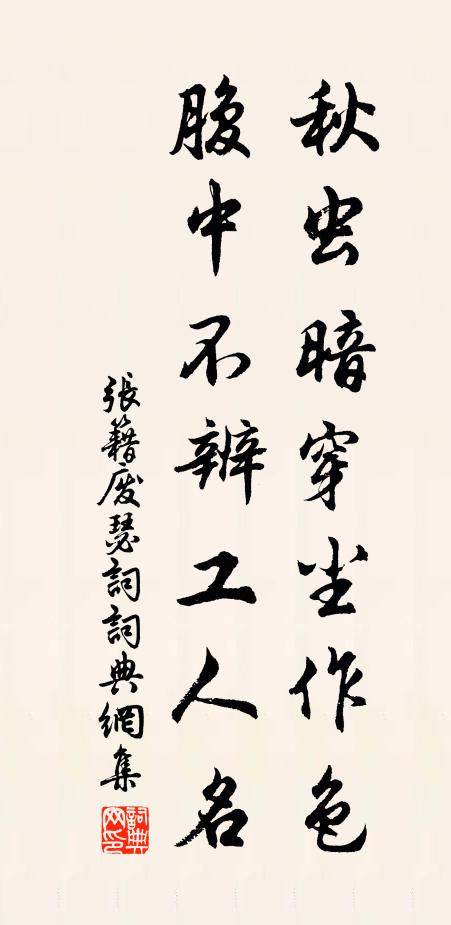 秋虫暗穿尘作色
腹中不辨工人名
張籍废瑟詞詞典網集
詞典网印